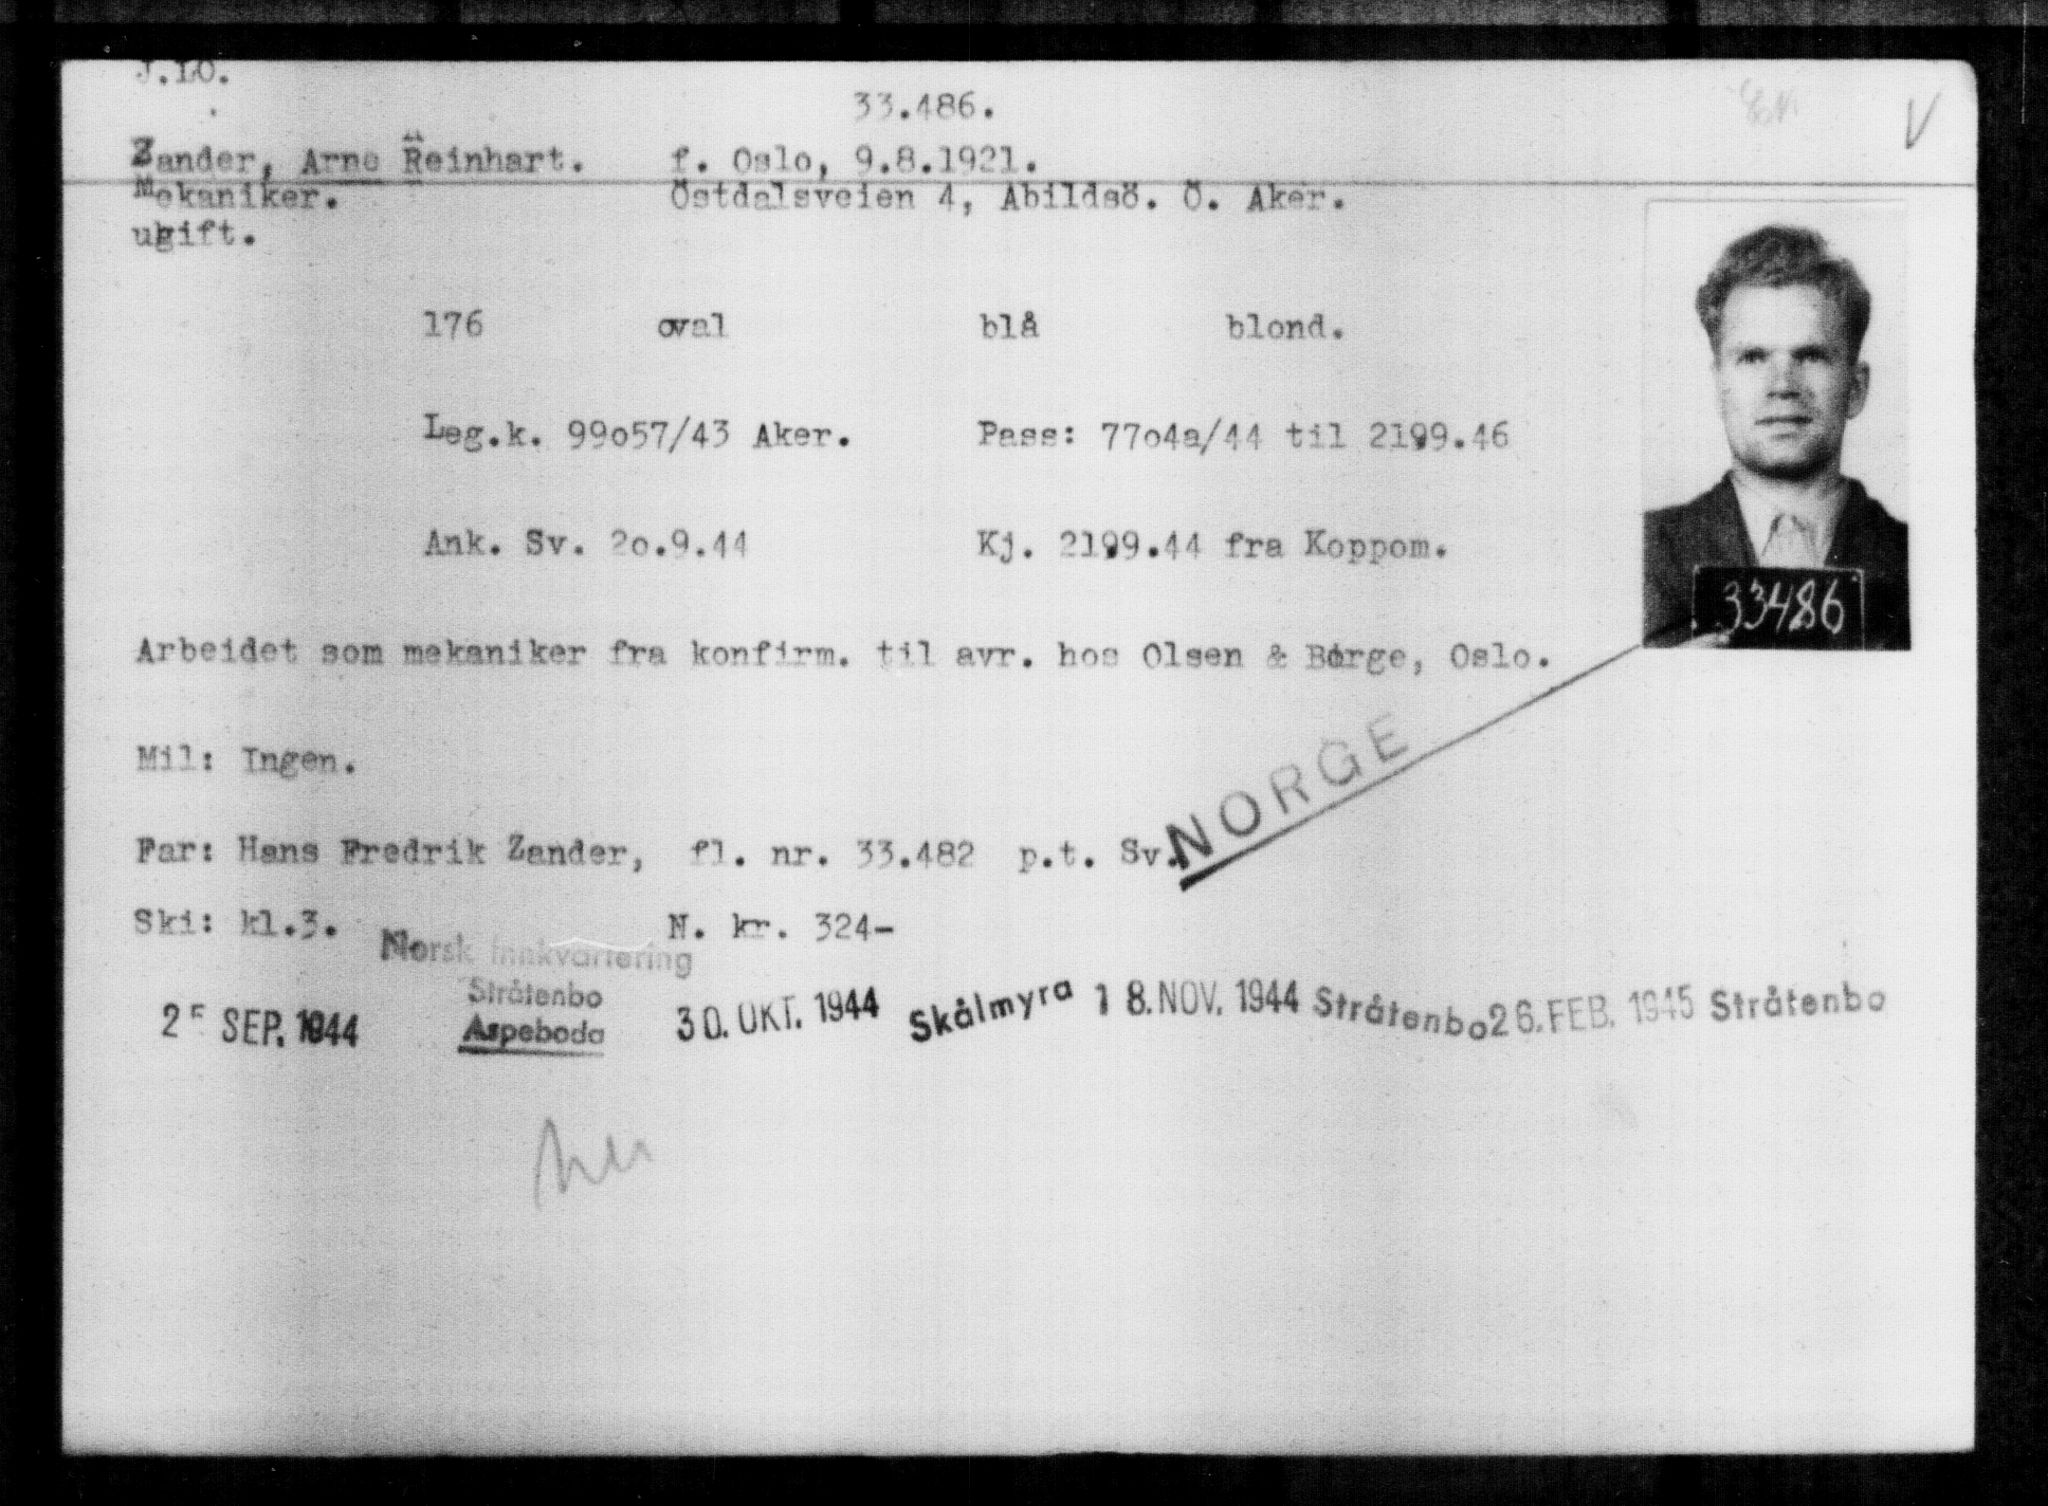 J.LO.
33.486.
V
Zander, Arne Reinhart. f. Oslo, 9.8.1921.
Mekaniker. Östdalsveien 4, Abildsö. Ö. Aker.
ugift.
176 oval blå blond.
Leg.k. 99o57/43 Aker. Pass: 77o4a/44 til 2199.46
Ank. Sv. 2o.9.44 Kj. 2199.44 fra Koppom.
33486
Arbeidet som mekaniker fra konfirm. til avr. hos Olsen & Børge, Oslo.
Mil: Ingen.
NORGE
Far: Hans Fredrik Zander, fl. nr. 33.482 p.t. Sv.
Ski: kl.3. N. kr. 324-
Norsk innkvartering
Stråtenbo
Aspeboda
25 SEP. 1944 30. OKT. 1944 Skålmyra 18. NOV. 1944 Stråtenbo 26. FEB. 1945 Stråtenbo